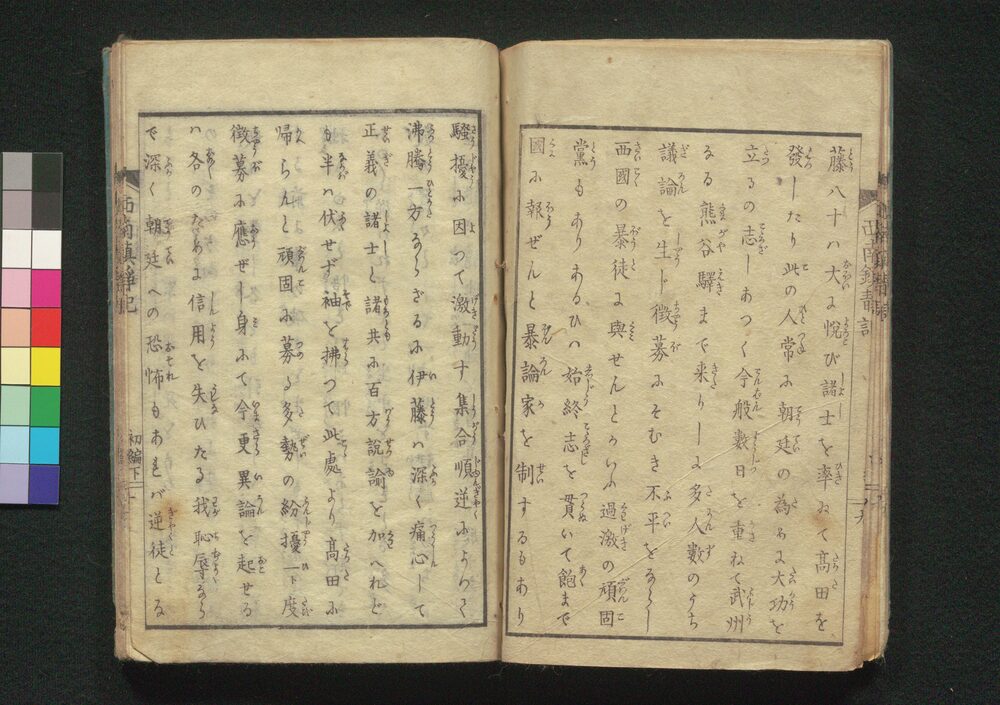 藤八十ハ大に悦び諸士を率ゐて髙田を
發したり此の人常に朝廷の為めに大功を
立るの志しあつく今般數日を重ねて武州
なる熊谷驛まで来りしに多人數のうち
議論を生じ徴募にそむき不平をならし
西國の暴徒に與せんとかいふ過激の頑固
黨もありあるひハ始終志を貫いて飽まで
國に報ぜんと暴論家を制するもあり
騒擾に因つて激動す集合順逆によつて
沸騰一方ならざるに伊藤ハ深く痛心して
正義の諸士と諸共に百方説諭を加へれど
も半ハ伏せず袖を拂つて此處より髙田に
帰らんと頑固に募る多勢の紛擾一ト度
徴募に應ぜし身にて今更異論を起せる
ハ各のために信用を失ひたる我恥辱なら
で深く朝廷への恐怖もあれバ逆徒とる
西南鎮静記
初編下